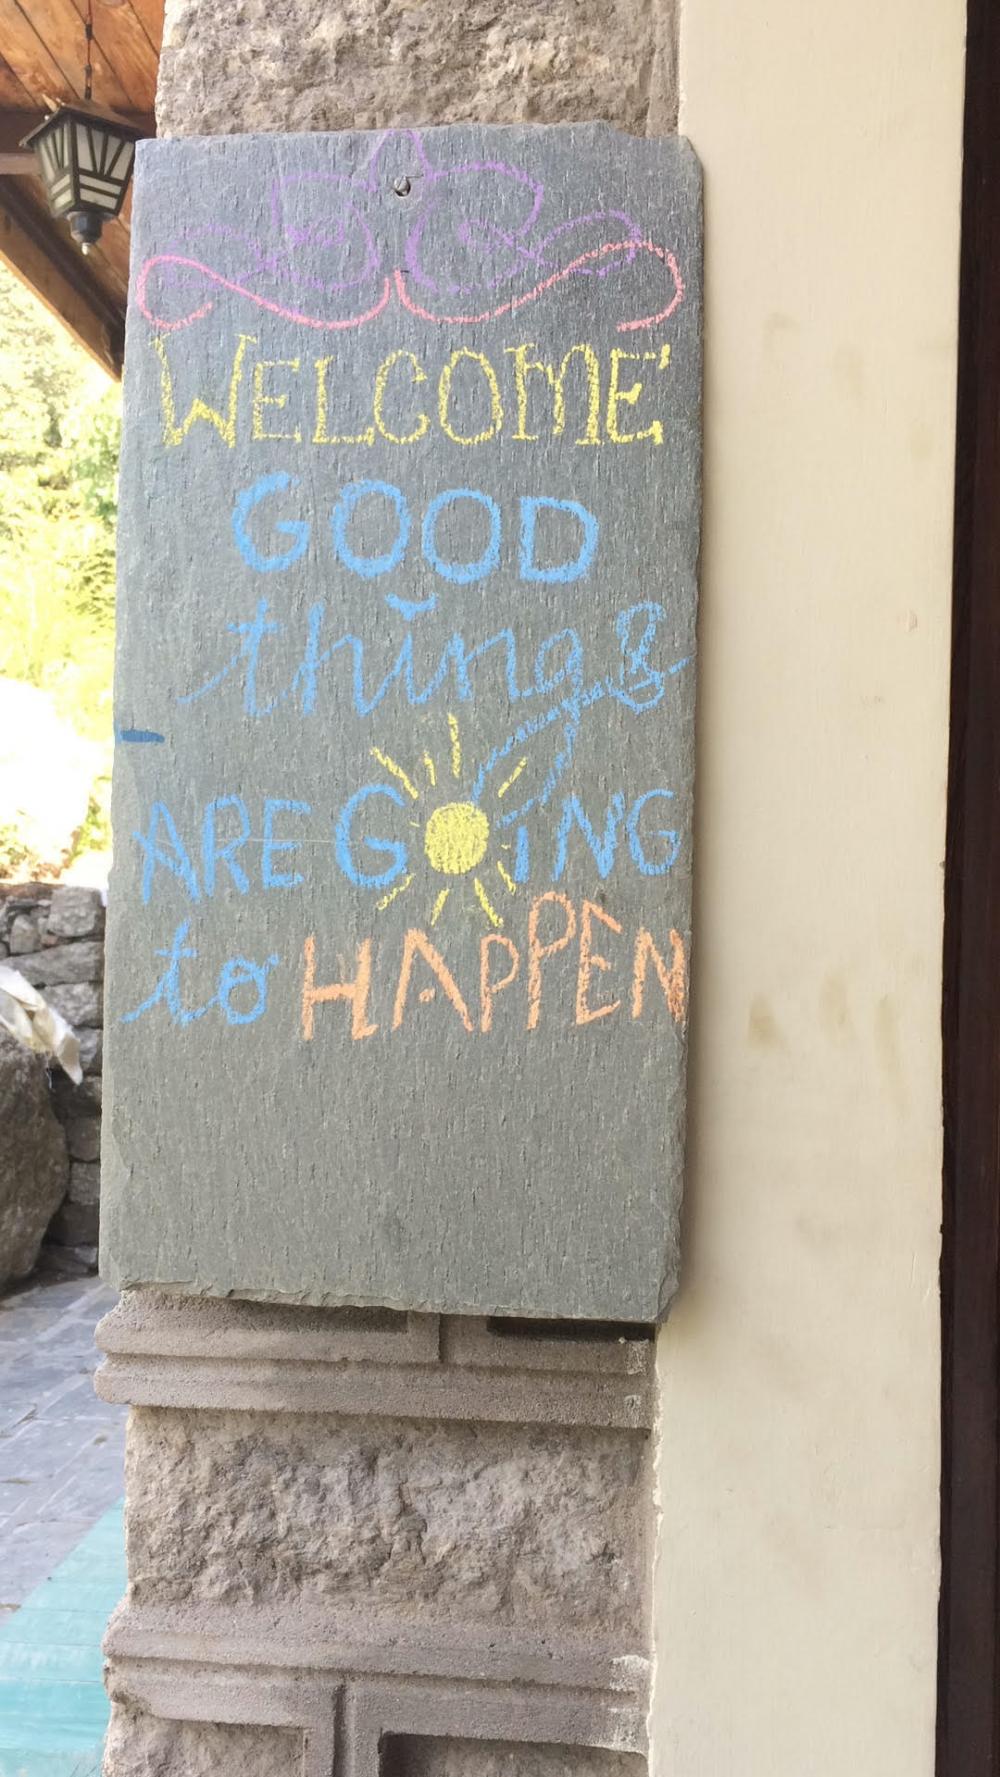 WELCOME
GOOD
things
ARE GOING
to HAPPEN